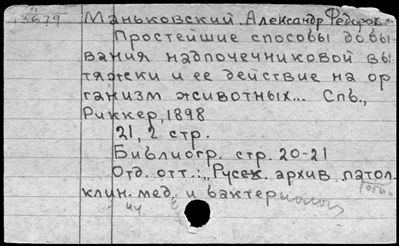 Маньковский, Александр Федоров.
Простейшие способы добы
вания надпочечниковой вы
тяжки и ее действие на ор
ганизм животных... Спб.,
Риккер, 1898
21, 2 стр.
Библиогр. стр. 20-21
Отд. отт.: „Русск. архив патол.
клин. мед. и бактериологи